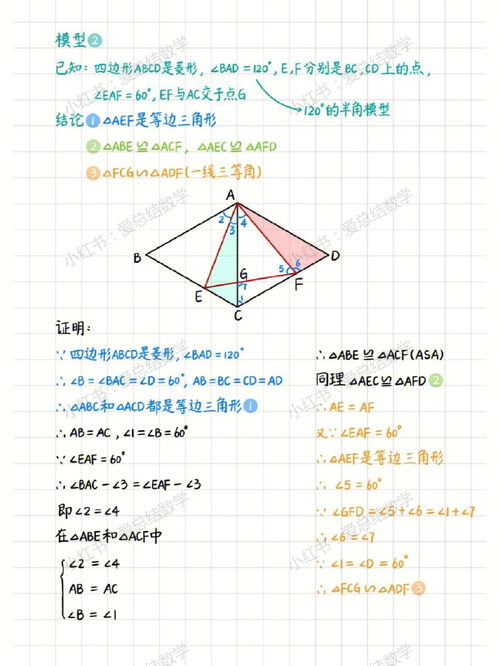 模型②
已知：四边形ABCD是菱形，∠BAD=120°，E,F分别是BC,CD上的点，
∠EAF=60°，EF与AC交于点G
→120°的半角模型
结论①△AEF是等边三角形
②△ABE≌△ACF，△AEC≌△AFD
③△FCG∽△ADF(一线三等角)
A
2 3 4
B
D
G
5 6
7
E
F
1
C
证明：
∵四边形ABCD是菱形，∠BAD=120°
∴∠B=∠BAC=∠D=60°，AB=BC=CD=AD
∴△ABC和△ACD都是等边三角形①
∴AB=AC，∠1=∠B=60°
∵∠EAF=60°
∴∠BAC-∠3=∠EAF-∠3
即∠2=∠4
在△ABE和△ACF中
∠2=∠4
AB=AC
∠B=∠1
∴△ABE≌△ACF(ASA)
同理△AEC≌△AFD②
∴AE=AF
又∵∠EAF=60°
∴△AEF是等边三角形
∴∠5=60°
∵∠GFD=∠5+∠6=∠1+∠7
∴∠6=∠7
∵∠1=∠D=60°
∴△FCG∽△ADF③
小红书：爱总结数学
小红书：爱总结数学
小红书：爱总结数学
小红书：爱总结数学
小红书：爱总结数学
小红书：爱总结数学